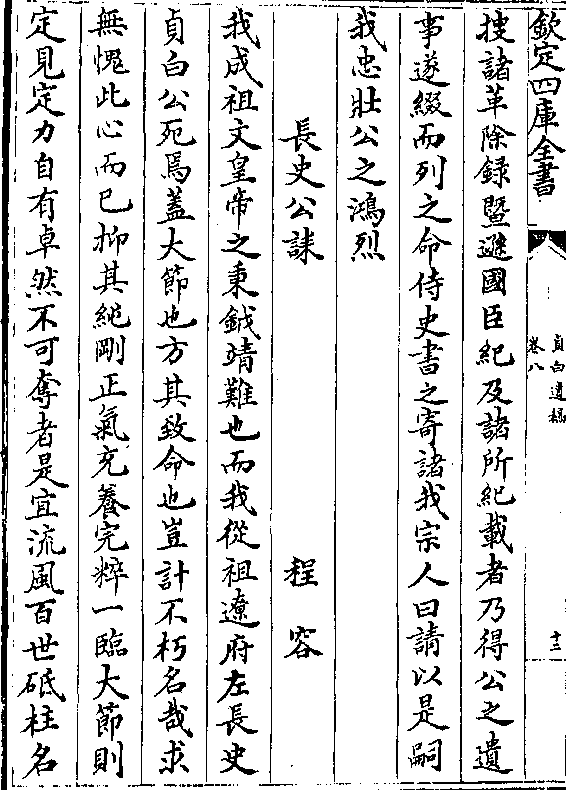 欽定四庫全書
貞白遺稿
卷八
十三
搜諸革除録暨遜國臣紀及諸所紀載者乃得公之遺
事遂綴而列之命侍史書之寄諸我宗人曰請以是嗣
我忠壯公之鴻烈
長史公誄 程容
我成祖文皇帝之秉鉞靖難也而我從祖遼府左長史
貞白公死焉蓋大節也方其致命也豈計不朽名哉求
無愧此心而已抑其純剛正氣充養完粹一臨大節則
定見定力自有卓然不可奪者是宜流風百世砥柱名